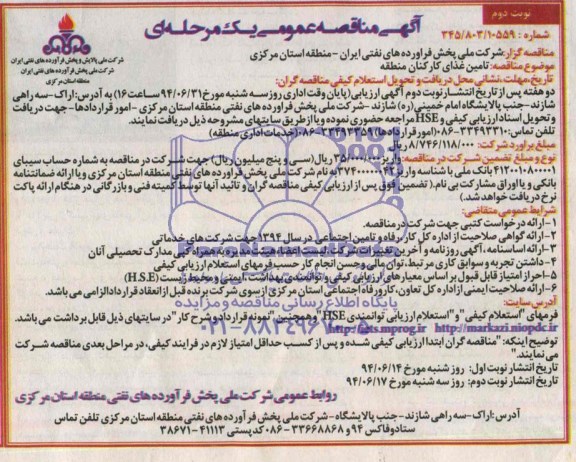 نوبت دوم
آگهی مناقصه عمومی یک مرحله‌ای
شماره : ۳۴۵/۸۰۳/۱۰۵۵۹
شرکت ملی پالایش و پخش فرآورده های نفتی ایران
شرکت ملی پخش فرآورده های نفتی ایران
مناقصه گزار: شرکت ملی پخش فراورده های نفتی ایران - منطقه استان مرکزی
موضوع مناقصه: تامین غذای کارکنان منطقه
تاریخ، مهلت، نشانی محل دریافت و تحویل استعلام کیفی مناقصه گران:
دو هفته پس از تاریخ انتشار نوبت دوم آگهی ارزیابی (پایان وقت اداری روز سه شنبه مورخ ۹۴/۰۶/۳۱ ساعت ۱۶) به آدرس: اراک- سه راهی
شازند- جنب پالایشگاه امام خمینی (ره) شازند - شرکت ملی پخش فراورده های نفتی منطقه استان مرکزی - امور قراردادها- جهت دریافت
و تحویل اسناد ارزیابی کیفی و HSE مراجعه حضوری نموده و یا از طریق سایتهای مشروحه ذیل دریافت نمایند.
تلفن تماس: ۳۳۴۹۳۳۱۰-۰۸۶ (امور قراردادها) ۳۳۴۹۳۳۵۹-۰۸۶ (خدمات اداری منطقه)
مبلغ برآورد شرکت: ۸/۷۴۶/۱۱۸/۰۰۰ ریال
نوع و مبلغ تضمین شرکت در مناقصه: واریز ۳۵/۰۰۰/۰۰۰ ریال (سی و پنج میلیون ریال) جهت شرکت در مناقصه به شماره حساب سیبای
بانک ملی با شناسه واریز به نام شرکت ملی پخش فرآورده های نفتی منطقه استان مرکزی و یا ارائه ضمانتنامه
بانکی و یا اوراق مشارکت بی نام. (تضمین فوق پس از ارزیابی کیفی مناقصه گران و تائید آنها توسط کمیته فنی و بازرگانی در هنگام ارائه پاکت
نرخ دریافت خواهد شد.)
شرایط عمومی متقاضی:
۱- ارائه درخواست کتبی جهت شرکت در مناقصه.
۲- ارائه گواهی صلاحیت از اداره کل کار، رفاه و تامین اجتماعی در سال ۱۳۹۴ جهت شرکت های خدماتی
۳- ارائه اساسنامه، آگهی روزنامه و آخرین تغییرات شرکت، لیست اعضاء هیئت مدیره به همراه کپی مدارک تحصیلی آنان
۴- داشتن تجربه و سوابق کاری مرتبط، توان مالی و حسن انجام کار حسب فرمهای استعلام ارزیابی کیفی
۵- احراز امتیاز قابل قبول بر اساس معیارهای ارزیابی کیفی و توانمندی بهداشت، ایمنی و محیط زیست (H.S.E)
۶- ارائه صلاحیت ایمنی از اداره کل تعاون، کار و رفاه اجتماعی استان مرکزی از سوی شرکت برنده قبل از انعقاد قرارداد الزامی می باشد.
آدرس سایت:
فرمهای "استعلام کیفی" و "استعلام ارزیابی توانمندی HSE" و همچنین "نمونه قرارداد و شرح کار" در سایتهای ذیل قابل برداشت می باشد.
http://iets.mporg.ir http://markazi.niopdc.ir
توضیح اینکه: "مناقصه گران ابتدا ارزیابی کیفی شده و پس از کسب حداقل امتیاز لازم در فرایند کیفی، در مراحل بعدی مناقصه شرکت
می نمایند."
تاریخ انتشار نوبت اول: روز شنبه مورخ ۹۴/۰۶/۱۴
تاریخ انتشار نوبت دوم: روز سه شنبه مورخ ۹۴/۰۶/۱۷
روابط عمومی شرکت ملی پخش فرآورده های نفتی منطقه استان مرکزی
آدرس: اراک- سه راهی شازند- جنب پالایشگاه - شرکت ملی پخش فرآورده های نفتی منطقه استان مرکزی تلفن تماس
ستاد و فاکس ۹۴ و ۳۳۶۶۸۸۶۸-۰۸۶ کدپستی ۴۱۱۱۳-۳۸۶۷۱
پایگاه اطلاع رسانی مناقصه و مزایده